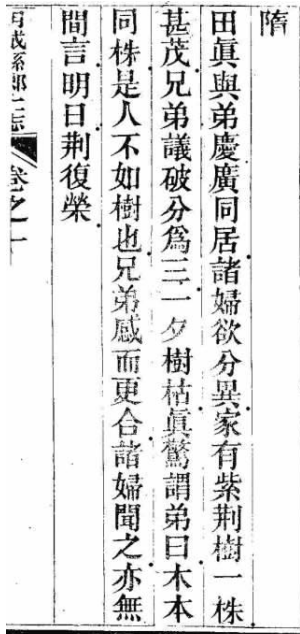 隋
田眞與弟慶廣同居諸婦欲分異家有紫荆樹一株
甚茂兄弟議破分爲三一夕樹枯眞驚謂弟曰木本
同株是人不如樹也兄弟感而更合諸婦聞之亦無
間言明日荆復榮
卷之一